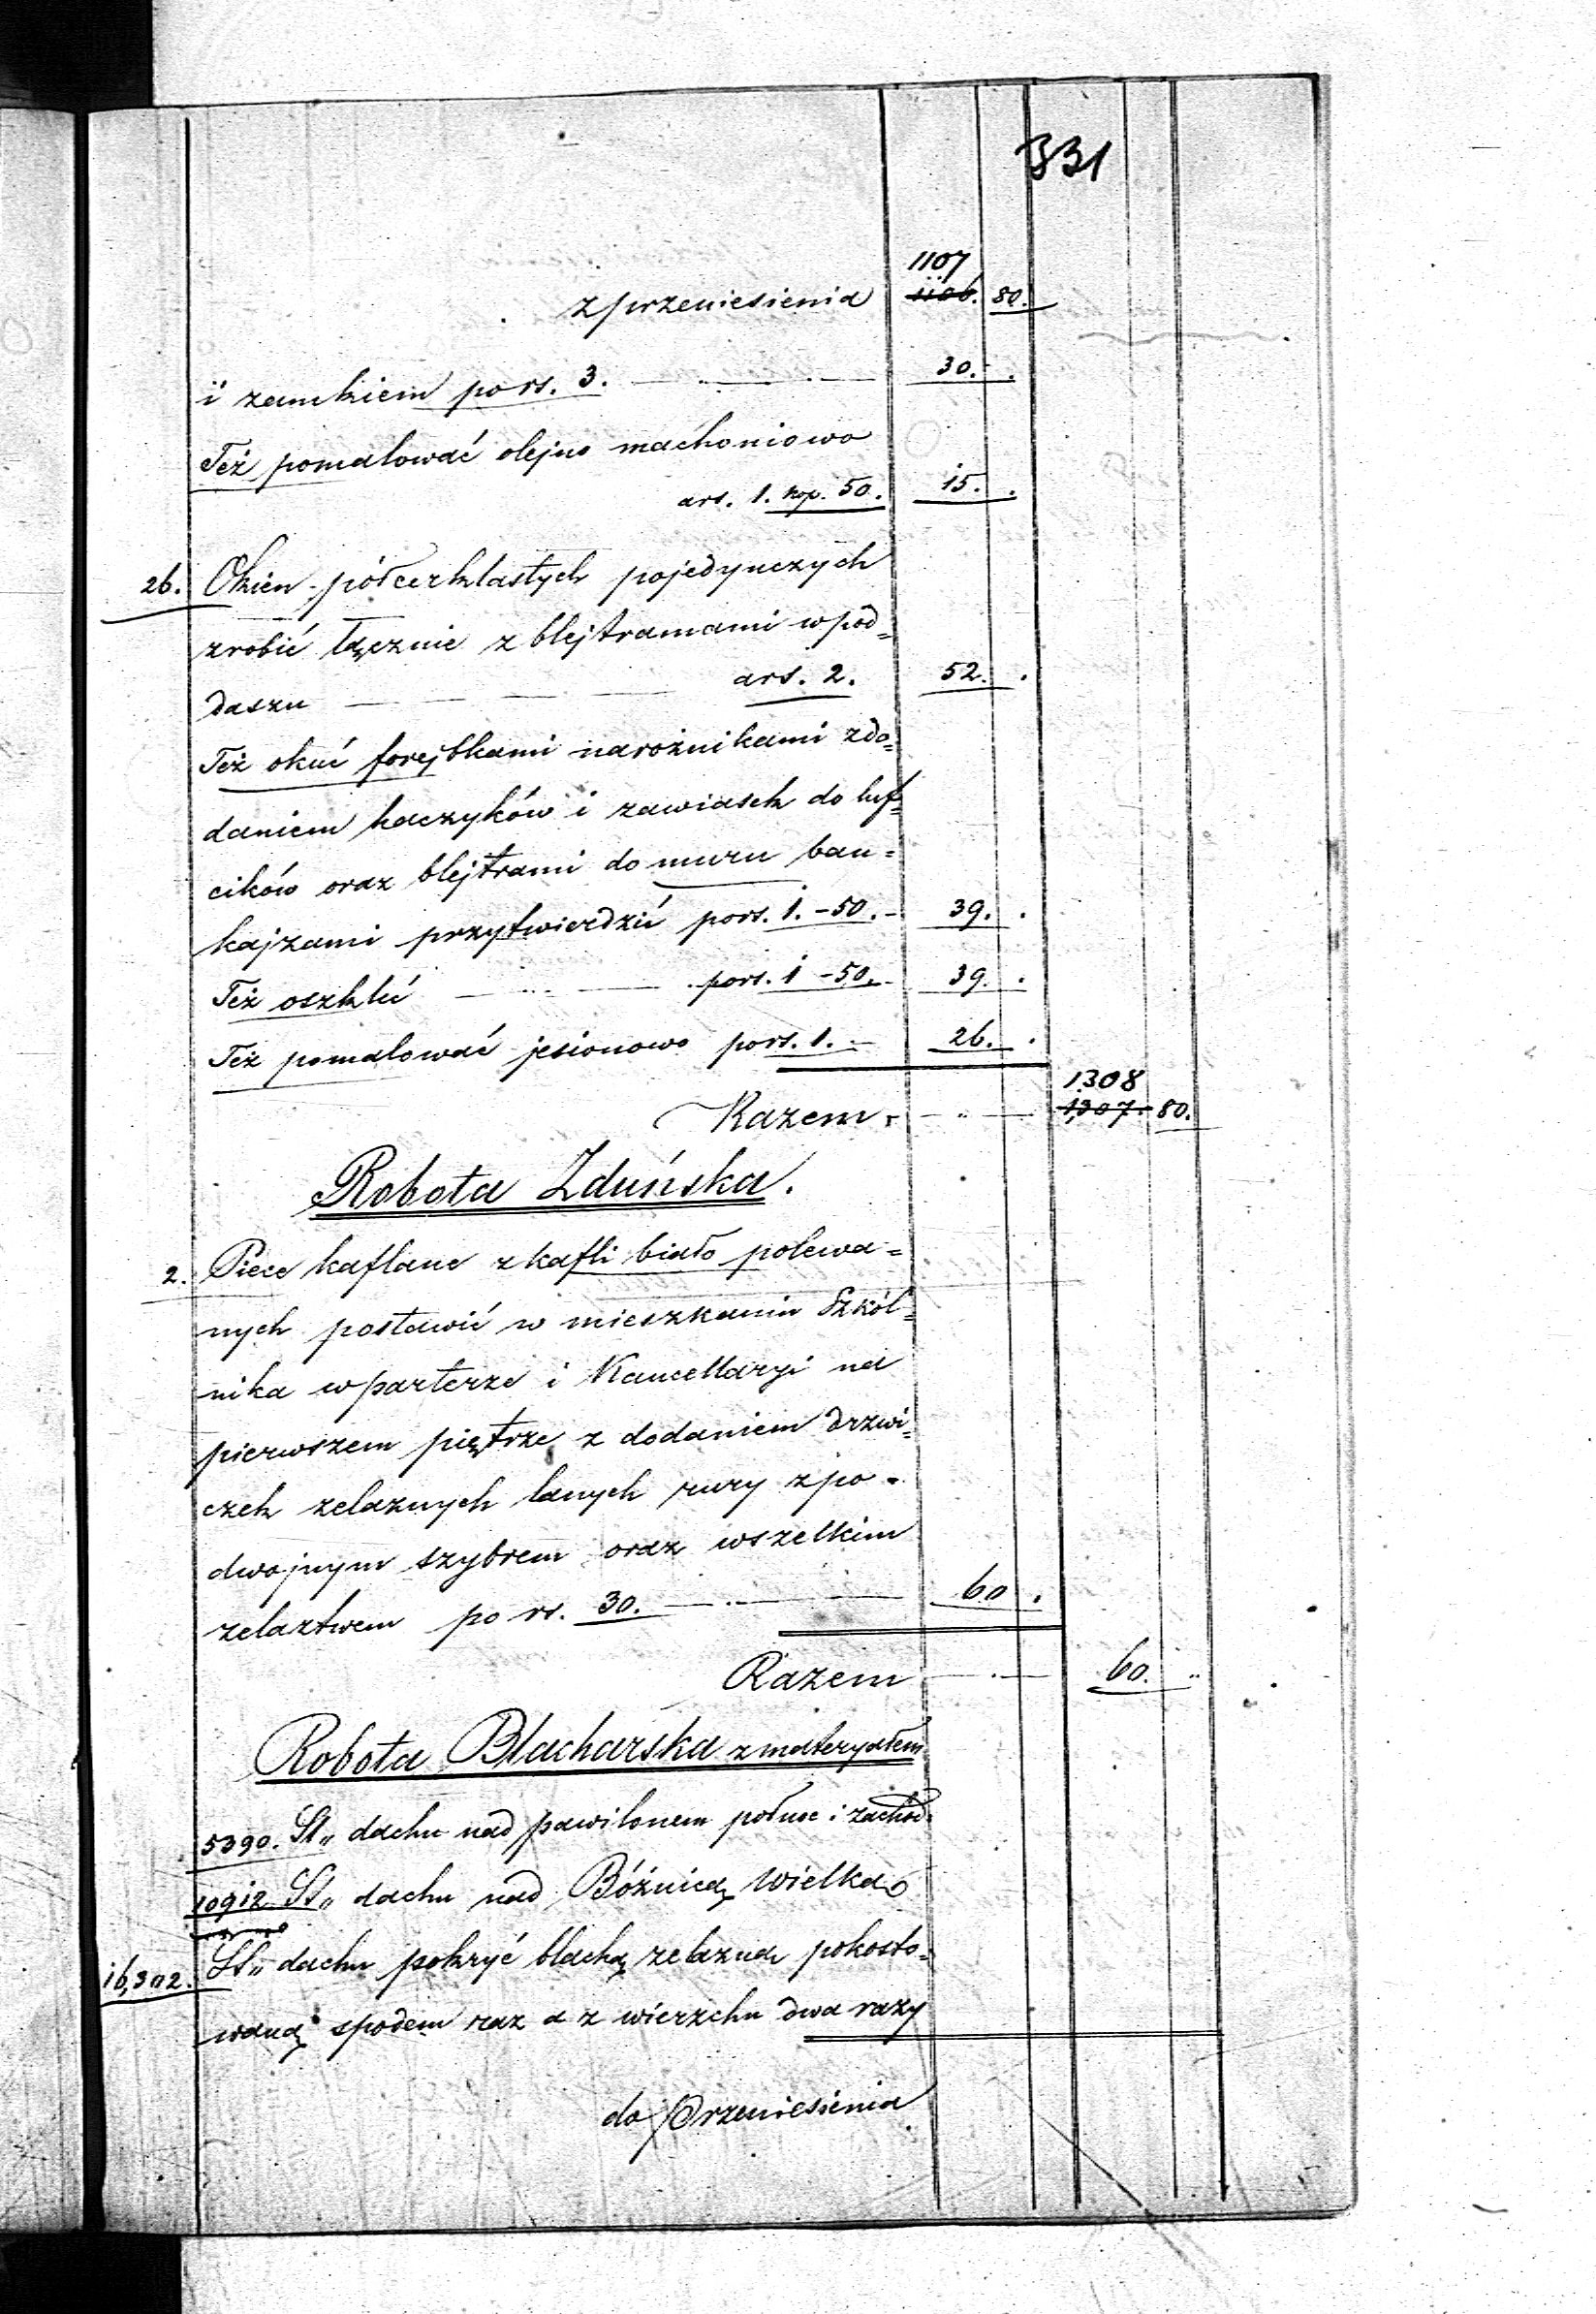 331
1107
z przeniesienia 1106. 80.
i zamkiem po rs. 3. 30.
Też pomalować olejno machoniowo
a rs. 1. kop. 50. 15.
26. Okien półcerklastych pojedynczych
zrobić łącznie z blejtramami w pod=
daszu a rs. 2. 52.
Też okuć forejbkami narożnikami z do=
daniem haczyków i zawiasek do luf=
cików oraz blejtrami do muru ban=
kajzami przytwierdzić po rs. 1.-50.- 39.
Też oszklić po rs. 1 -50.- 39.
Też pomalować jesionowo po rs. 1.- 26.
1308
Razem 1,307. 80.
Robota Zduńska.
2. Piece kaflane z kafli biało polewa=
nych postawić w mieszkaniu Szkól=
nika w parterze i Kancellaryi na
pierwszem piętrze z dodaniem drzwi=
czek żelaznych lanych rury z po=
dwojnym szybrem oraz wszelkim
żelaztwem po rs. 30. 60.
Razem 60.
Robota Blacharska z materyałem
5390. St„ dachu nad pawilonem połnoc i zachod.
10912 St„ dachu nad Bóżnicą Wielką
16,302. St„ dachu pokryć blachą żelazną pokosto=
waną spodem raz a z wierzchu dwa razy
do Przeniesienia